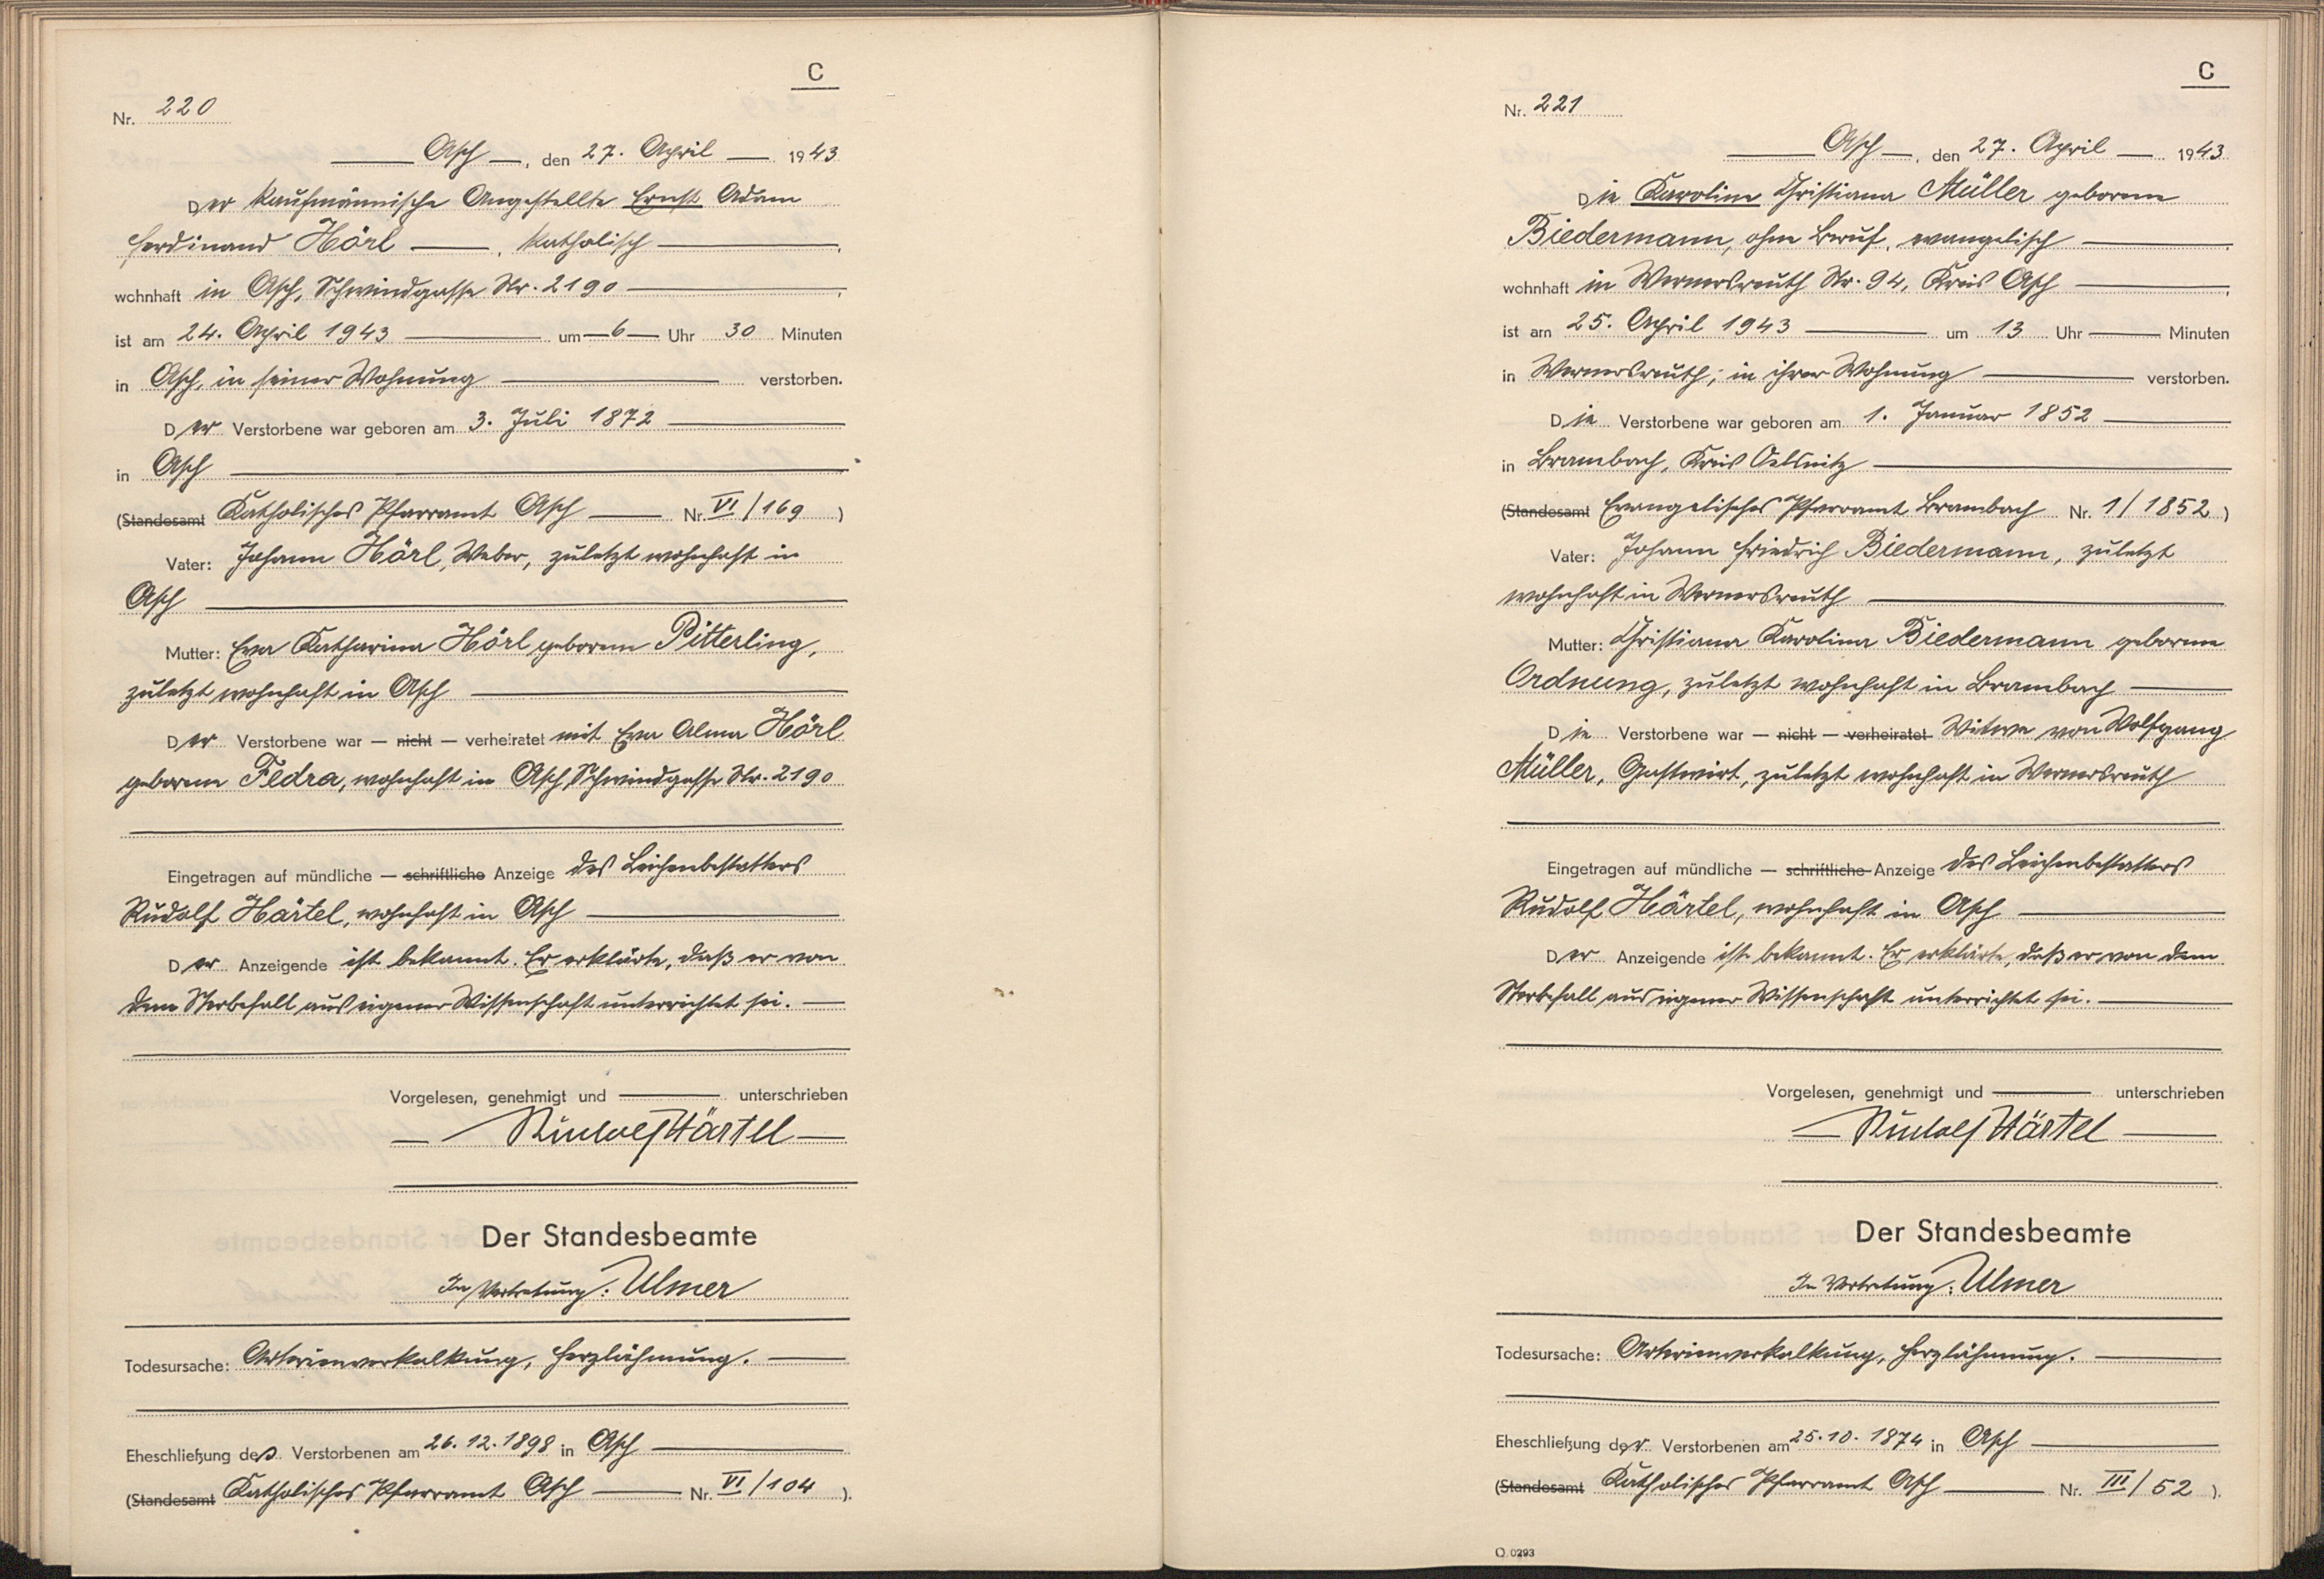 C
Nr. 220
Asch, den 27. April 1943
Der kaufmännische Angestellte Ernst Adam
Ferdinand Hörl, katholisch,
wohnhaft in Asch, Schwindgasse Nr. 2190,
ist am 24. April 1943 um 6 Uhr 30 Minuten
in Asch, in seiner Wohnung verstorben.
Der Verstorbene war geboren am 3. Juli 1872
in Asch
(Standesamt Katholisches Pfarramt Asch Nr. VI/169)
Vater: Johann Hörl, Weber, zuletzt wohnhaft in
Asch
Mutter: Eva Katharina Hörl geborene Pitterling,
zuletzt wohnhaft in Asch
Der Verstorbene war — nicht — verheiratet mit Eva Alma Hörl
geborene Fedra, wohnhaft in Asch, Schwindgasse Nr. 2190
Eingetragen auf mündliche — schriftliche Anzeige des Leichenbestatters
Rudolf Härtel, wohnhaft in Asch
Der Anzeigende ist bekannt. Er erklärte, daß er von
dem Sterbefall aus eigener Wissenschaft unterrichtet sei.
Vorgelesen, genehmigt und unterschrieben
Rudolf Härtel
Der Standesbeamte
In Vertretung: Ulmer
Todesursache: Arterienverkalkung, Herzlähmung.
Eheschließung des Verstorbenen am 26.12.1898 in Asch
(Standesamt Katholisches Pfarramt Asch Nr. VI/104).
C
Nr. 221
Asch, den 27. April 1943
Die Karoline Christiana Müller geborene
Biedermann, ohne Beruf, evangelisch,
wohnhaft in Wernersreuth Nr. 94, Kreis Asch,
ist am 25. April 1943 um 13 Uhr Minuten
in Wernersreuth, in ihrer Wohnung verstorben.
Die Verstorbene war geboren am 1. Januar 1852
in Brambach, Kreis Oelsnitz
(Standesamt Evangelisches Pfarramt Brambach Nr. 1/1852)
Vater: Johann Friedrich Biedermann, zuletzt
wohnhaft in Wernersreuth
Mutter: Christiana Karolina Biedermann geborene
Ordnung, zuletzt wohnhaft in Brambach
Die Verstorbene war — nicht — verheiratet Witwe von Wolfgang
Müller, Gastwirt, zuletzt wohnhaft in Wernersreuth
Eingetragen auf mündliche — schriftliche Anzeige des Leichenbestatters
Rudolf Härtel, wohnhaft in Asch
Der Anzeigende ist bekannt. Er erklärte, daß er von dem
Sterbefall aus eigener Wissenschaft unterrichtet sei.
Vorgelesen, genehmigt und unterschrieben
Rudolf Härtel
Der Standesbeamte
In Vertretung: Ulmer
Todesursache: Arterienverkalkung, Herzlähmung.
Eheschließung der Verstorbenen am 25.10.1874 in Asch
(Standesamt Katholisches Pfarramt Asch Nr. III/52).
Q 0293